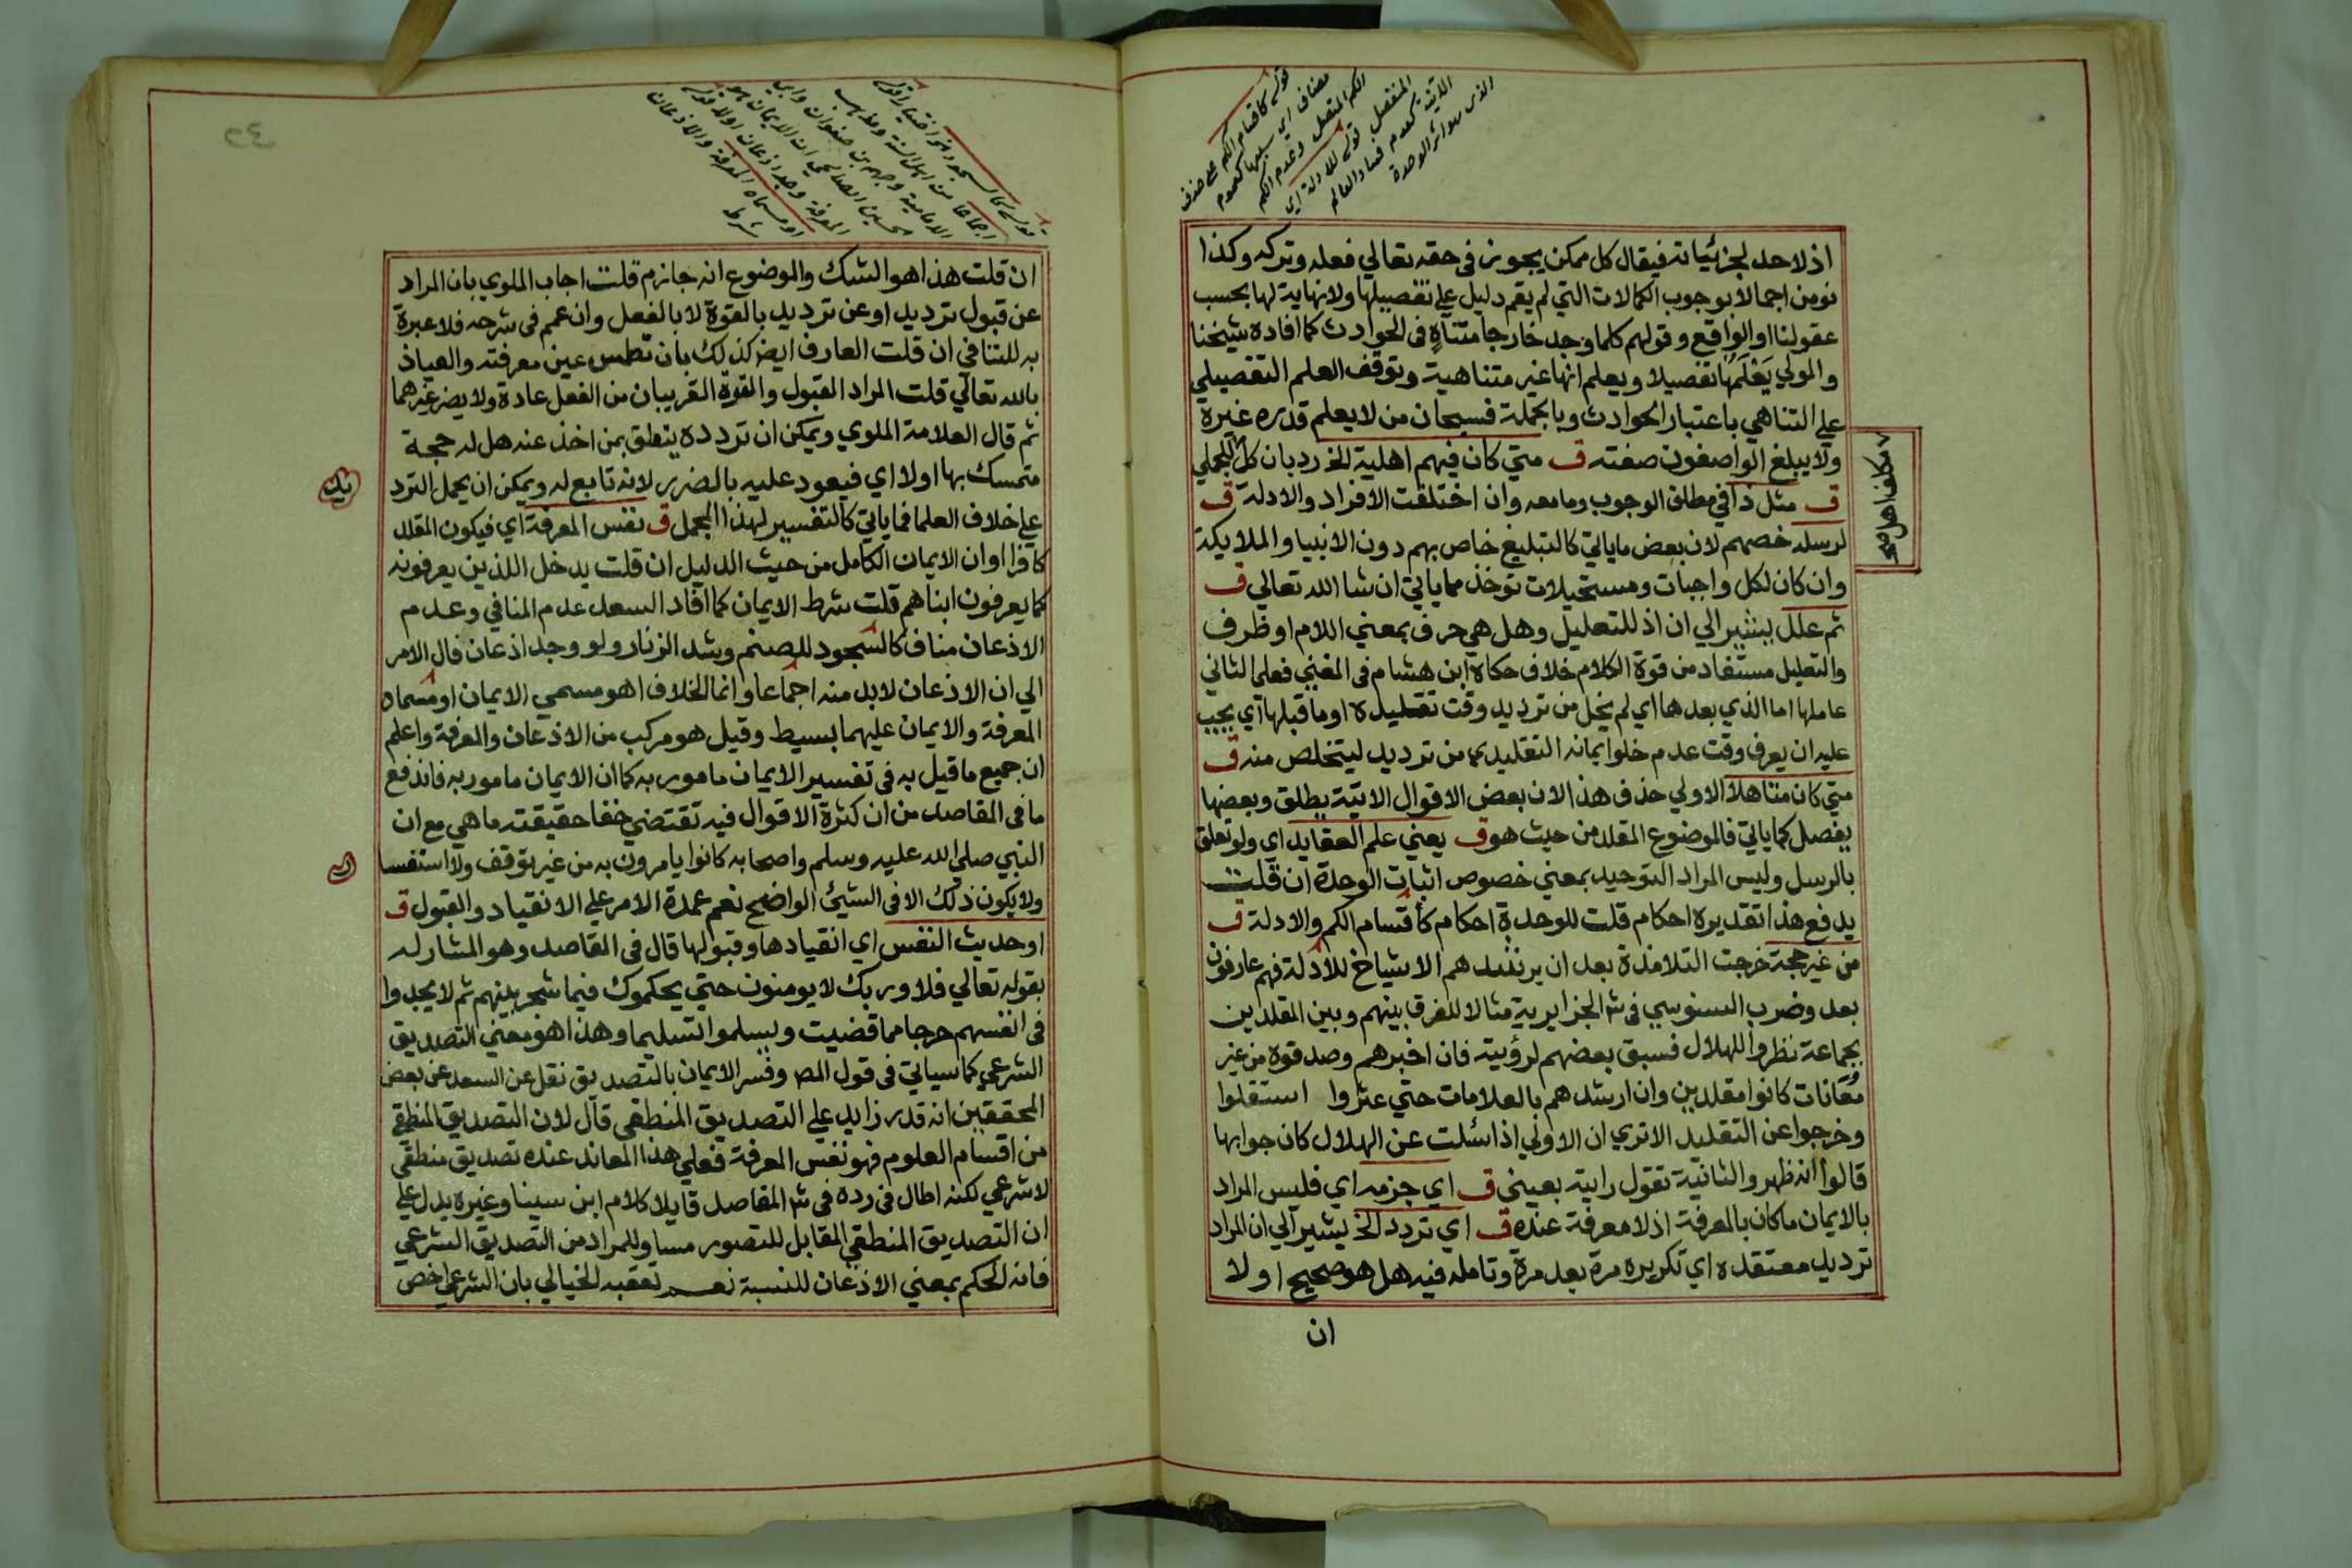 اذ لا حد لجزئياته فيقال كل ممكن يجوز في حقه تعالي فعله وتركه وكذا
نومن اجمالا بوجوب الكمالات التي لم يقم دليل علي تفصيلها ولا نهاية لها بحسب
عقولنا او الواقع وقولهم كلما وجد خارجا متناه في الحوادث كما افاده شيخنا
والمولي يَعْلَمُها تفصيلا ويعلم انها غير متناهية وتوقف العلم التفصيلي
علي التناهي باعتبار الحوادث وبالجملة فسبحان من لا يعلم قدره غيره
ولا يبلغ الواصفون صفته ق متي كان فيهم اهلية الخ رد بان كل الجملي
ق مثل ذا في مطلق الوجوب وما معه وان اختلفت الافراد والادلة ق
لرسله خصهم لان بعض ما ياتي كالتبليغ خاص بهم دون الانبيا والملايكة
وان كان لكل واجبات ومستحيلات توخذ مما ياتي ان شا الله تعالي ق
ثم علل يشير الي ان اذ للتعليل وهل هي حرف بمعني اللام او ظرف
والتعليل مستفاد من قوة الكلام خلاف حكاه ابن هشام في المغني فعلي الثاني
عاملها اما الذي بعدها اي لم يخل من ترديد وقت تقليده او ما قبلها اي يجب
عليه ان يعرف وقت عدم خلو ايمانه التقليدي من ترديد ليتخلص منه ق
متي كان متاهلا الاولي حذف هذا لان بعض الاقوال الاتية يطلق وبعضها
يفصل كما ياتي فالموضوع المقلد من حيث هو ق يعني علم العقايد اي ولو تعلق
بالرسل وليس المراد التوحيد بمعني خصوص اثبات الوحدة ان قلت
يدفع هذا تقديره احكام قلت للوحدة احكام كاقسام الكم والادلة ق
من غير حجة خرجت التلامذة بعد ان يرشدهم الاشياخ للادلة فهم عارفون
بعد وضرب السنوسي في ش الجزايرية مثالا للفرق بينهم وبين المقلدين
بجماعة نظروا للهلال فسبق بعضهم لرؤيته فان اخبرهم وصدقوه من غير
مُعَانات كانوا مقلدين وان ارشدهم بالعلامات حتي عثروا استقلوا
وخرجوا عن التقليد الاتري ان الاولي اذا سئلت عن الهلال كان جوابها
قالوا انه ظهر والثانية تقول رايته بعيني ق اي جزمه اي فليس المراد
بالايمان ما كان بالمعرفة اذ لا معرفة عنده ق اي تردد الخ يشير الي ان المراد
ترديد معتقده اي تكريره مرة بعد مرة وتامله فيه هل هو صحيح او لا
ان
ان قلت هذا هو الشك والموضوع انه جازم قلت اجاب الملوي بان المراد
عن قبول ترديد او عن ترديد بالقوة لا بالفعل وان عمم في شرحه فلا عبرة
به للتنافي ان قلت العارف ايض كذلك بان تطمس عين معرفته والعياذ
بالله تعالي قلت المراد القبول والقوة القريبان من الفعل عادة ولا يضر غيرهما
ثم قال العلامة الملوي ويمكن ان تردده يتعلق بمن اخذ عنه هل له حجة
متمسك بها اولا اي فيعود عليه بالضرر لانه تابع له ويمكن ان يحمل الترد
علي خلاف العلما فما ياتي كالتفسير لهذا المجمل ق نفس المعرفة اي فيكون المقلد
كافرا او ان الايمان الكامل من حيث الدليل ان قلت يدخل اللذين يعرفونه
كما يعرفون ابناهم قلت شرط الايمان كما افاد السعد عدم المنافي وعدم
الاذعان مناف كالسجود للصنم وشد الزنار ولو وجد اذعان فال الامر
الي ان الاذعان لابد منه اجماعا وانما الخلاف اهو مسمي الايمان او مسماه
المعرفة والايمان عليهما بسيط وقيل هو مركب من الاذعان والمعرفة واعلم
ان جميع ما قيل به في تفسير الايمان مامور به كما ان الايمان مامور به فاندفع
ما في المقاصد من ان كثرة الاقوال فيه تقتضي خفا حقيقته ما هي مع ان
النبي صلي الله عليه وسلم واصحابه كانوا يامرون به من غير توقف ولا استفسا
ولا يكون ذلك الا في الشيئ الواضح نعم عمدة الامر علي الانقياد والقبول ق
او حديث النفس اي انقيادها وقبولها قال في المقاصد وهو المشار له
بقوله تعالي فلا وربك لا يومنون حتي يحكموك فيما شجر بينهم ثم لا يجدوا
في انفسهم حرجا مما قضيت ويسلموا تسليما وهذا هو معني التصديق
الشرعي كما سياتي في قول المص وفسر الايمان بالتصديق نقل عن السعد عن بعض
المحققين انه قدر زايد علي التصديق المنطقي قال لان التصديق المنطقي
من اقسام العلوم فهو نفس المعرفة فعلي هذا المعاند عنده تصديق منطقي
لا شرعي لكنه اطال في رده في ش المقاصد قايلا كلام ابن سينا وغيره يدل علي
ان التصديق المنطقي المقابل للتصور مساو للمراد من التصديق الشرعي
فانه الحكم بمعني الاذعان للنسبة نعم تعقبه الخيالي بان الشرعي اخص